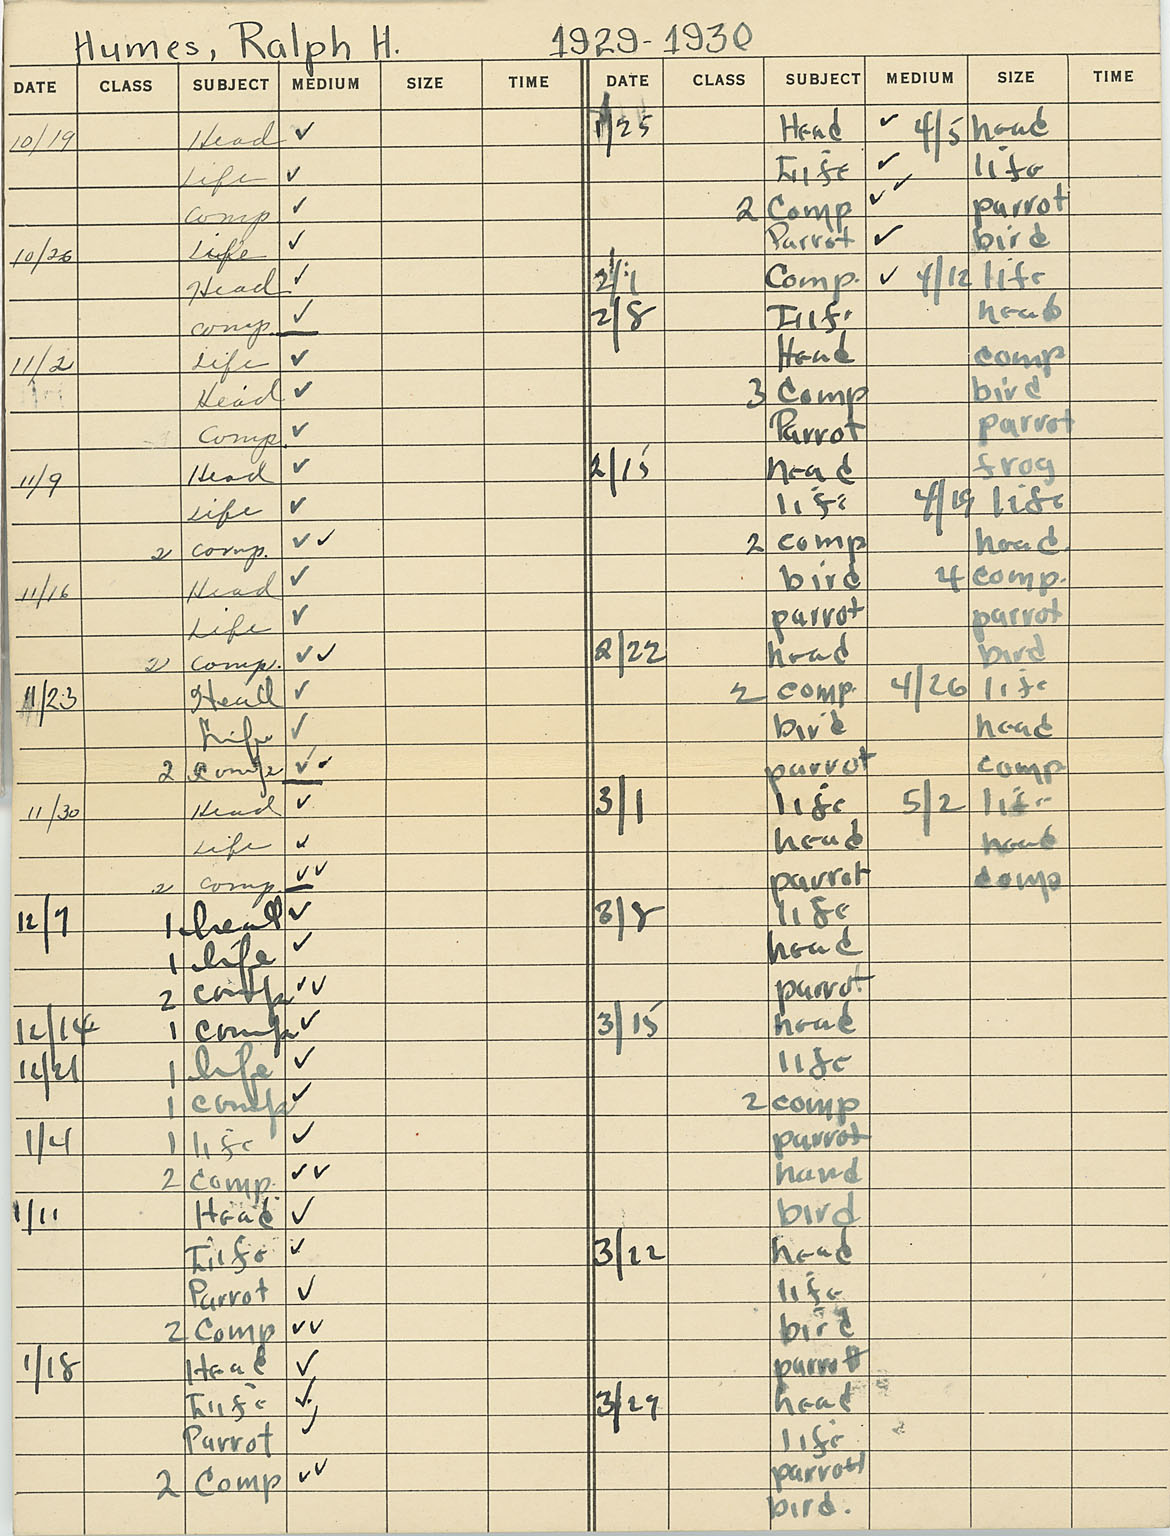 Humes, Ralph H. 1929-1930
DATE CLASS SUBJECT MEDIUM SIZE TIME DATE CLASS SUBJECT MEDIUM SIZE TIME
10/19 Head ✓
Life ✓
Comp ✓
10/26 Life ✓
Head ✓
Comp. ✓
11/2 Life ✓
Head ✓
Comp. ✓
11/9 Head ✓
Life ✓
2 Comp. ✓✓
11/16 Head ✓
Life ✓
2 Comp. ✓✓
11/23 Head ✓
Life ✓
2 Comp ✓✓
11/30 Head ✓
Life ✓
2 Comp. ✓✓
12/7 1 head ✓
1 life ✓
2 comp ✓✓
12/14 1 comp ✓
12/21 1 life ✓
1 comp ✓
1/4 1 life ✓
2 Comp. ✓✓
1/11 Head ✓
Life ✓
Parrot ✓
2 Comp ✓✓
1/18 Head ✓
Life ✓
Parrot ✓
2 Comp ✓✓
1/25 Head ✓
Life ✓
2 Comp ✓✓
Parrot ✓
2/1 Comp. ✓
2/8 Life
Head
3 Comp
Parrot
2/15 head
life
2 comp
bird
parrot
2/22 head
2 comp.
bird
parrot
3/1 life
head
parrot
3/8 life
head
parrot
3/15 head
life
2 comp
parrot
hand
bird
3/22 head
life
bird
parrot
3/29 head
life
parrot
bird.
4/5 head
life
parrot
bird
4/12 life
head
comp
bird
parrot
frog
4/19 life
head.
4 comp.
parrot
bird
4/26 life
head
comp
5/2 life
head
comp